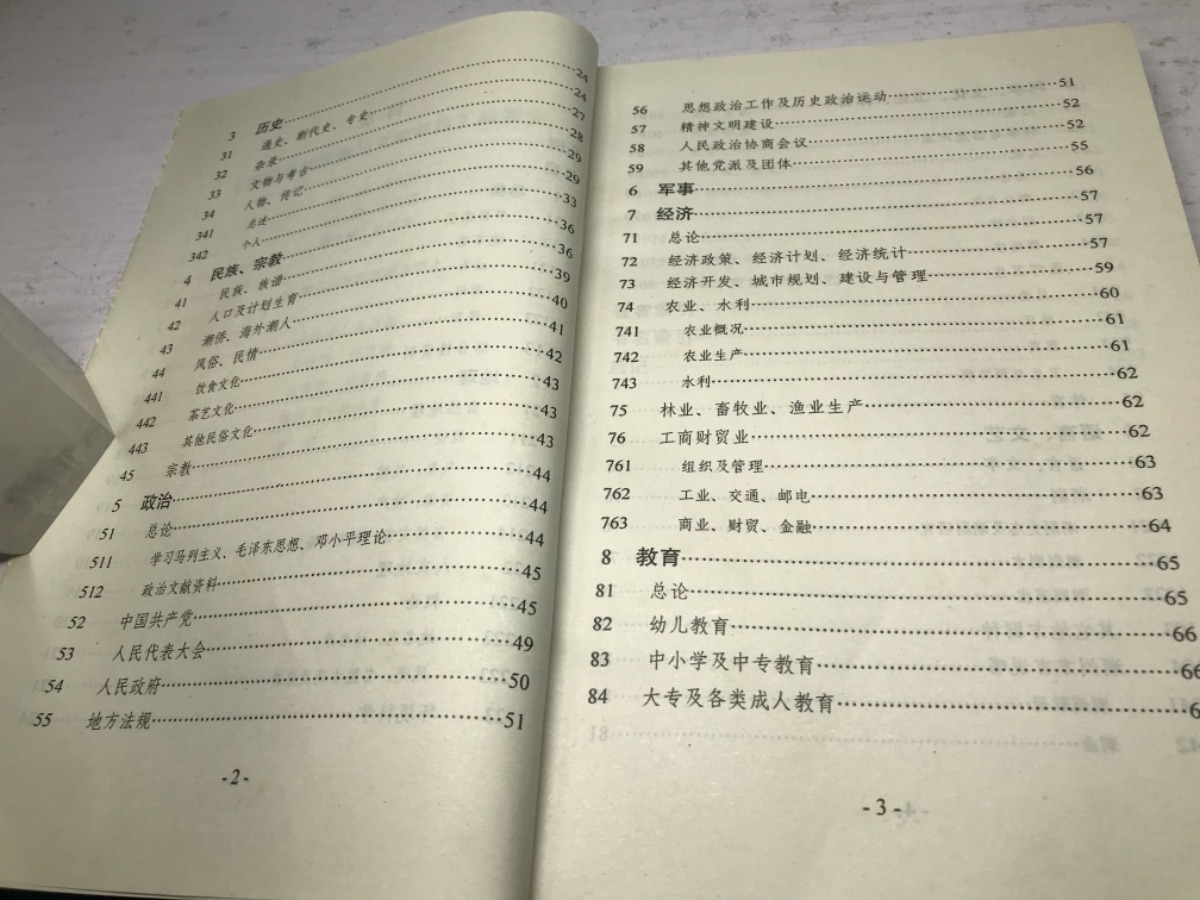 3 历史……24
31 通史、断代史、专史……24
32 杂录……27
33 文物与考古……28
34 人物、传记……29
341 总述……29
342 个人……33
4 民族、宗教……36
41 民族、族谱……36
42 人口及计划生育……39
43 潮侨、海外潮人……40
44 风俗、民情……41
441 饮食文化……42
442 茶艺文化……43
443 其他民俗文化……43
45 宗教……43
5 政治……44
51 总论……44
511 学习马列主义、毛泽东思想、邓小平理论……44
512 政治文献资料……45
52 中国共产党……45
53 人民代表大会……49
54 人民政府……50
55 地方法规……51
-2-
56 思想政治工作及历史政治运动……51
57 精神文明建设……52
58 人民政治协商会议……52
59 其他党派及团体……55
6 军事……56
7 经济……57
71 总论……57
72 经济政策、经济计划、经济统计……57
73 经济开发、城市规划、建设与管理……59
74 农业、水利……60
741 农业概况……61
742 农业生产……61
743 水利……62
75 林业、畜牧业、渔业生产……62
76 工商财贸业……62
761 组织及管理……63
762 工业、交通、邮电……63
763 商业、财贸、金融……64
8 教育……65
81 总论……65
82 幼儿教育……66
83 中小学及中专教育……66
84 大专及各类成人教育……
-3-